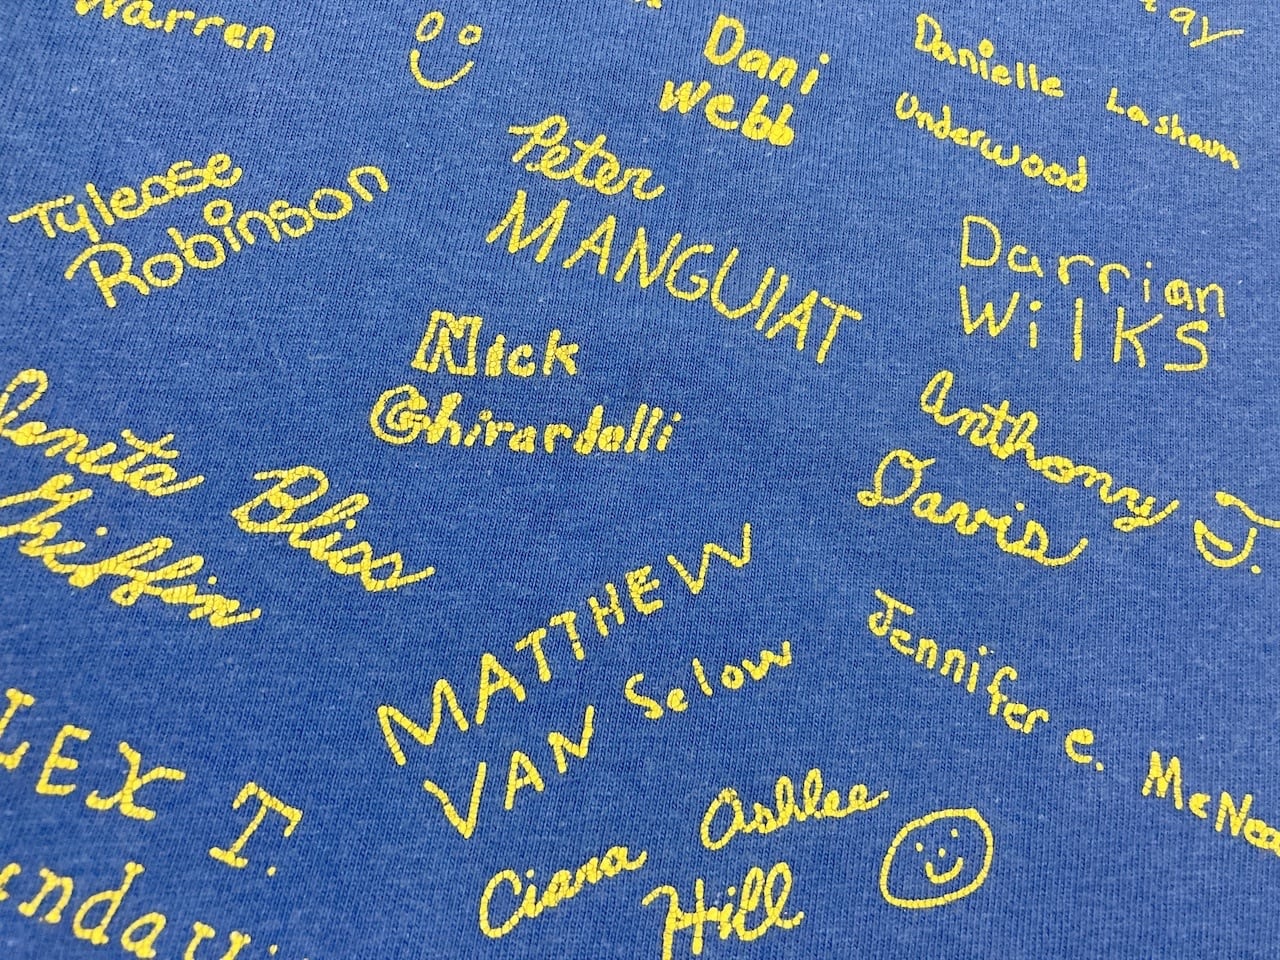 Warren
Dani
Webb
Danielle Lashaun
Underwood
Tylease
Robinson
Peter
MANGUIAT
Darrian
Wilks
Nick
Ghirardelli
Anthony J.
Davis
Bliss
Griffin
MATTHEW
VAN Selow
Jennifer C. McNea
LEX T.
Ciana Ashlee
Hill